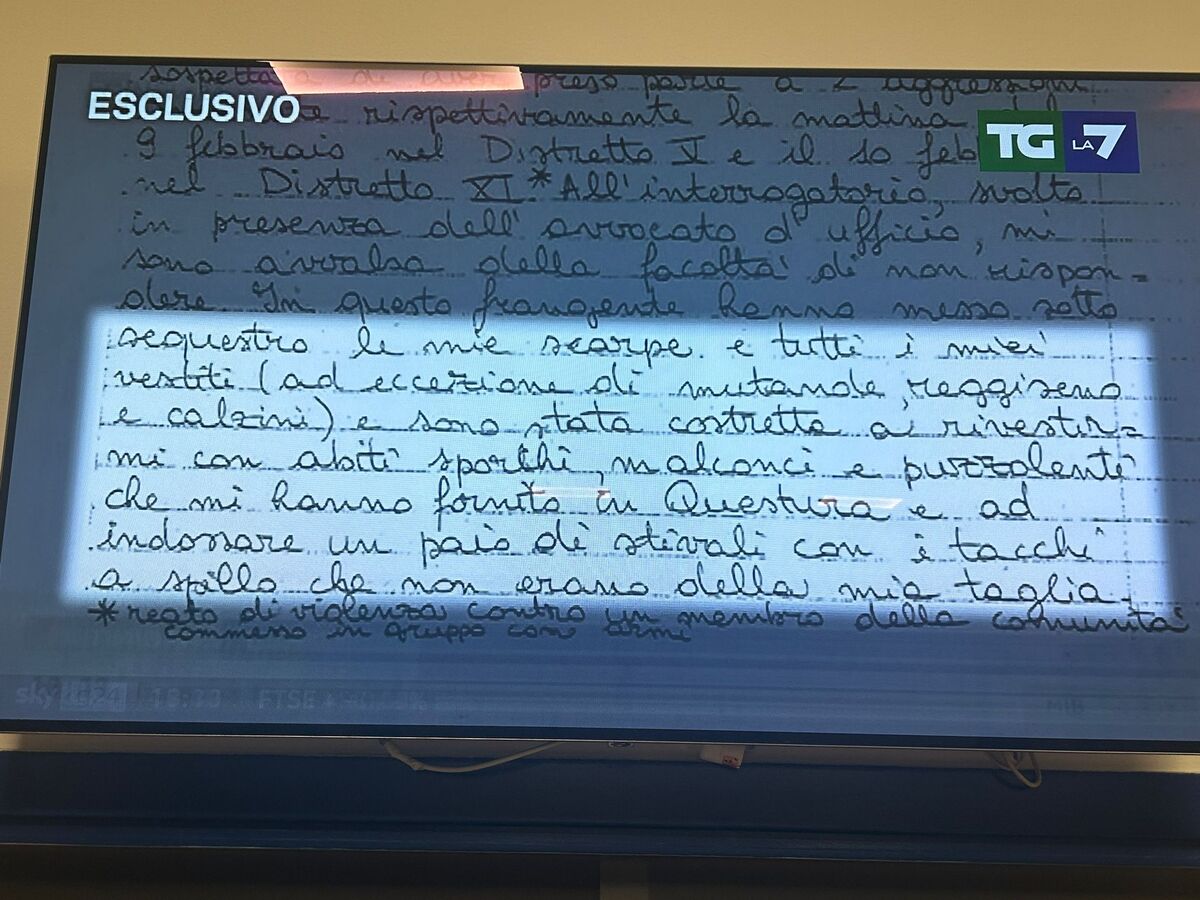 sospettata di aver preso parte a 2 aggressioni
ESCLUSIVO
rispettivamente la mattina
9 febbraio nel Distretto V e il 10 feb
TG LA7
nel Distretto XI * All'interrogatorio, svolto
in presenza dell'avvocato d'ufficio, mi
sono avvalsa della facoltà di non rispon=
dere In questo frangente hanno messo sotto
sequestro le mie scarpe e tutti i miei
vestiti (ad eccezione di mutande, reggiseno
e calzini) e sono stata costretta a rivestir=
mi con abiti sporchi, malconci e puzzolenti
che mi hanno fornito in Questura e ad
indossare un paio di stivali con i tacchi
a spillo che non erano della mia taglia.
* reato di violenza contro un membro della comunità
commesso in gruppo con armi
sky TG24 FTSE